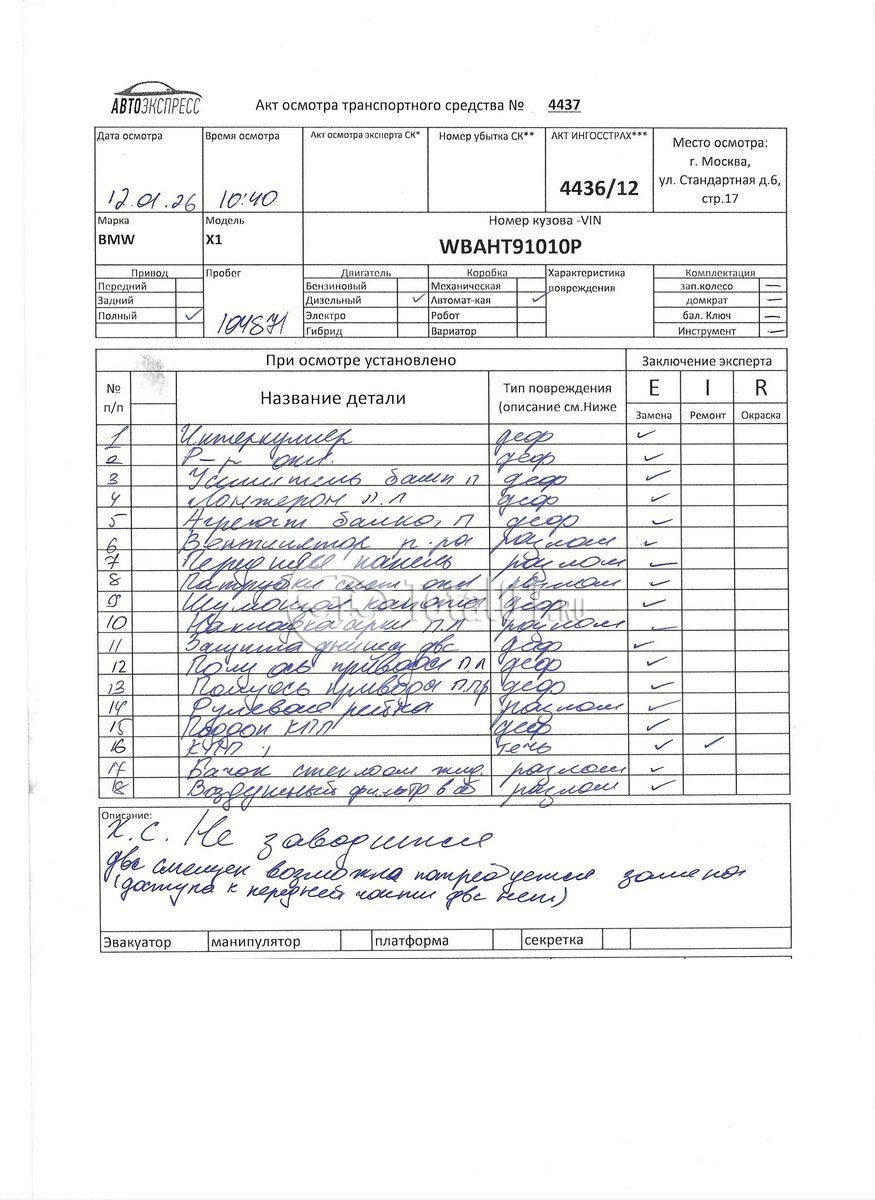 АВТОЭКСПРЕСС
Акт осмотра транспортного средства № 4437
Дата осмотра Время осмотра Акт осмотра эксперта СК* Номер убытка СК** АКТ ИНГОССТРАХ*** Место осмотра:
г. Москва,
ул. Стандартная д.6,
стр.17
12.01.26 10:40 4436/12
Марка Модель Номер кузова -VIN
BMW X1 WBAHT91010P
Привод Пробег Двигатель Коробка Характеристика повреждения Комплектация
Передний Бензиновый Механическая зап.колесо —
Задний Дизельный ✓ Автомат-кая ✓ домкрат —
Полный ✓ 104871 Электро Робот бал. Ключ —
Гибрид Вариатор Инструмент —
При осмотре установлено Заключение эксперта
№ п/п Название детали Тип повреждения (описание см.Ниже E I R
Замена Ремонт Окраска
1 Интеркулиер деф ✓
2 Р-р охл. деф ✓
3 Усилитель бамп п деф ✓
4 Лонжерон п.л деф ✓
5 деф ✓
6 Вентилятор р-ра разлом ✓
7 Передняя панель разлом ✓
8 Патрубки сист охл разлом ✓
9 капота деф ✓
10 Накладка арки п.л разлом ✓
11 Защита днища двс деф ✓
12 Полу ось привода п л деф ✓
13 Полуось привода п.пр деф ✓
14 Рулевая рейка разлом ✓
15 Поддон КПП деф ✓
16 течь ✓ ✓
17 Бачок стеклоом жид. разлом ✓
18 Воздушный фильтр в сб разлом ✓
Описание:
Х.С. Не заводится
двс смещен возможна потребуется замена
(доступа к передней части двс нет)
Эвакуатор манипулятор платформа секретка
TOTAL
.RU